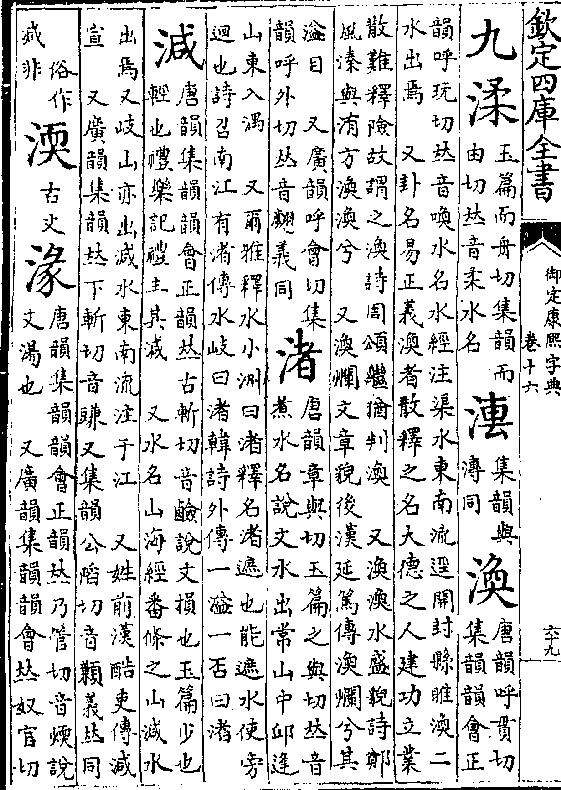 欽定四庫全書
御定康熙字典
卷十六
六十九
九渘玉篇而舟切集韻而由切𠀤音柔水名 湪集韻與漙同 渙唐韻呼貫切集韻韻會正
韻呼玩切𠀤音喚水名水經注渠水東南流逕開封縣睢渙二
水出焉 又卦名易正義渙者散釋之名大德之人建功立業
散難釋險故謂之渙詩周頌繼猶判渙 又渙渙水盛貌詩鄭
風溱與洧方渙渙兮 又渙爛文章貌後漢延篤傳渙爛兮其
溢目 又廣韻呼會切集韻呼外切𠀤音翽義同 渚唐韻章與切玉篇之與切𠀤音煮水名說文水出常山中邱逢
山東入湡 又爾雅釋水小洲曰渚釋名渚遮也能遮水使旁
迴也詩召南江有渚傳水岐曰渚韓詩外傳一溢一否曰渚
減唐韻集韻韻會正韻𠀤古斬切音鹼說文損也玉篇少也輕也禮樂記禮主其減 又水名山海經番條之山減水
出焉又岐山亦出減水東南流注于江 又姓前漢酷吏傳減
宣 又廣韻集韻𠀤下斬切音豏又集韻公陷切音顲義𠀤同
俗作减非 渜古文湪唐韻集韻韻會正韻𠀤乃管切音煗說文湯也 又廣韻集韻韻會𠀤奴官切